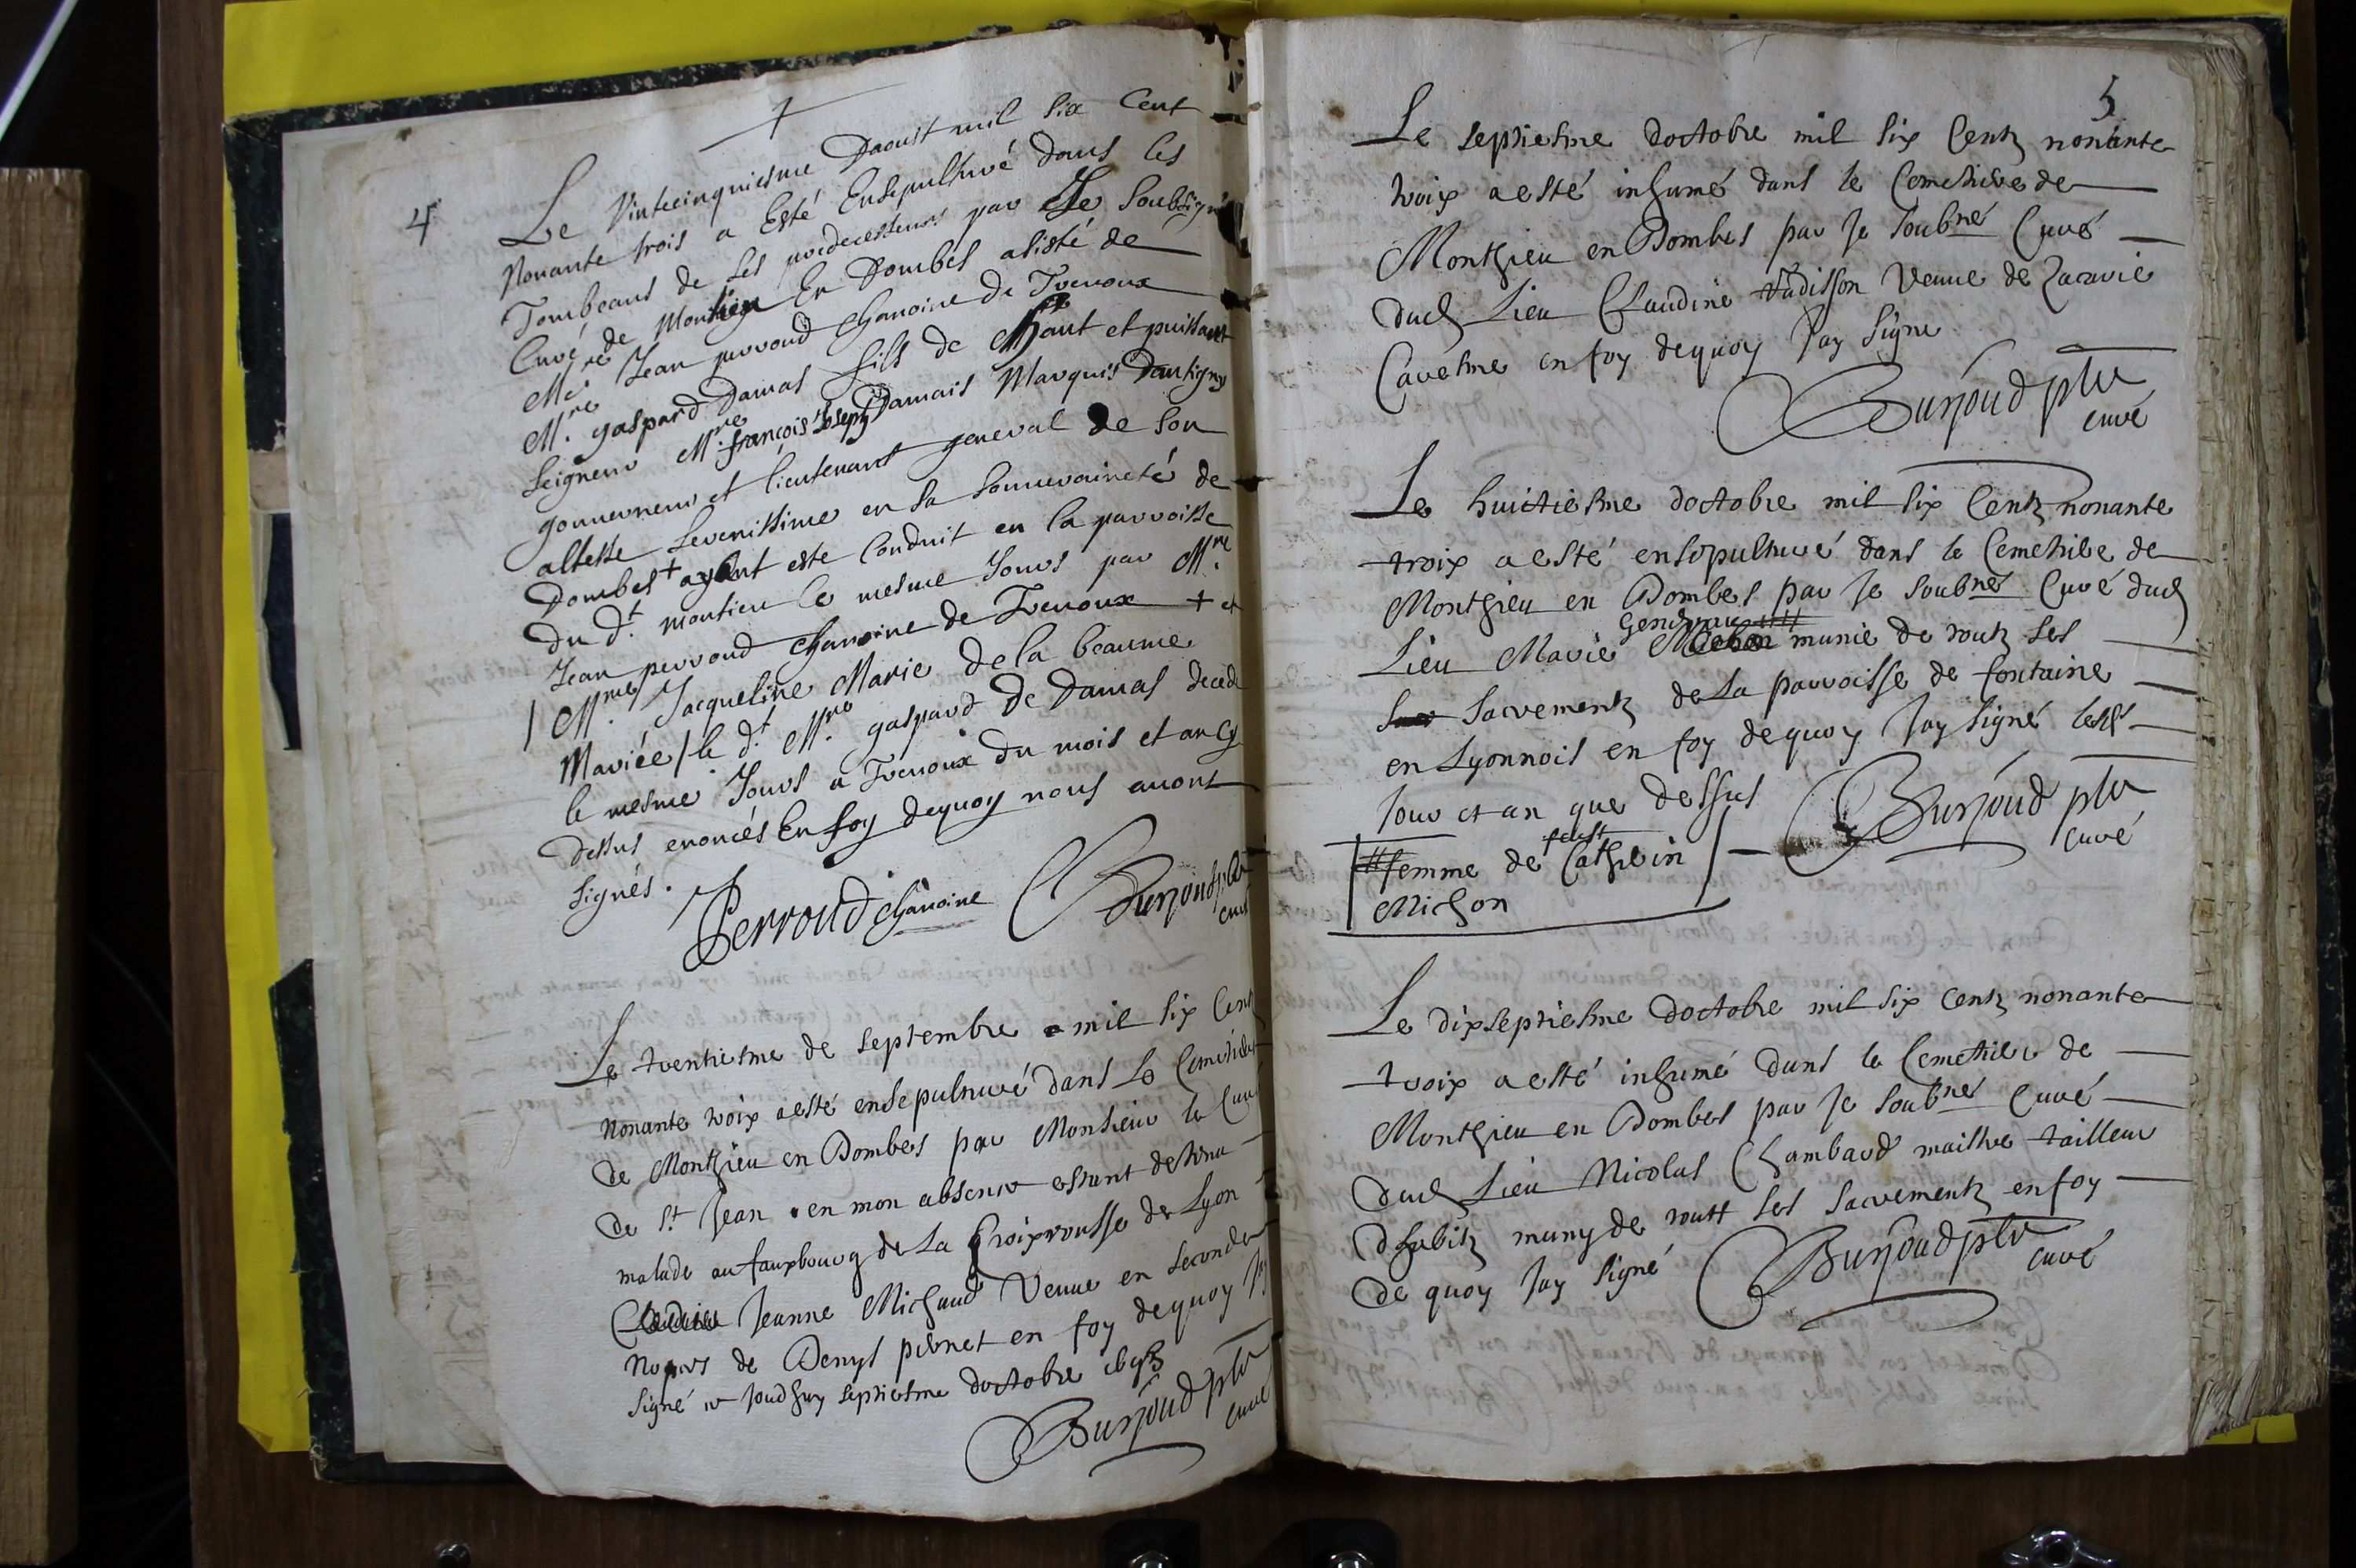 4
Le Vintecinquiesme Daoust mil six Cent
Nonante trois a Esté Ensepulturé dans les
Tombeaus de ses predecesseurs par Je soubsigné
Curé de Montieu En Dombes asisté de
Mre Jean perroud chanoine de Trevoux
Mre gaspard Damas fils de Haut et puissant
seigneur Mre françois Joseph Damas Marquis Dantigny
gouverneur et lieutenant general de son
altesse serenissime en sa souveraineté de
Dombes + ayant esté Conduit en la parroisse
du dt montieu le mesme Jours par Mre
Jean perroud chanoine de Trevoux + et
/ Mme Jacqueline Marie de la beaume
Mariée / le dt Mre gaspard De Damas decedé
le mesme Jours a Trevoux du mois et an cy
dessus enoncés En foy dequoy nous avons
signés.
Perroud chanoine Burjoud ptr
curé
Le trentiesme de septembre mil six Cent
nonante troix a esté ensepulturé dans Le Cemetiere
de Monthieu en Dombes par Monsieur le Curé
de St Jean en mon absence estant detenu
malade au fauxbourg de La Croixrousse de Lyon
Jeanne Michaud Veuve en seconde
nopces de Denys pernet en foy dequoy J'ay
signé ce Jourdhuy septiesme doctobre
Burjoud ptr
curé
5
Le septiesme doctobre mil six Centz nonante
troix a esté inhumé dans le Cemethiere de
Monthieu en Dombes par Je soubné Curé
dud Lieu Claudine Vadisson Veuve de Zacarie
Caresme en foy dequoy J'ay signe
Burjoud ptr
curé
Le huictiesme doctobre mil six Centz nonante
troix a esté ensepulturé dans le Cemethiere de
Monthieu en Dombes par Je soubné Curé dud
Lieu Marie munie de toutz ses
Sacrementz de La parroisse de fontaine
en Lyonnois en foy dequoy J'ay signé lesd
Jour et an que dessus Burjoud ptr
curé
feust
# femme de Catherin
Michon
Le dixseptiesme doctobre mil six Centz nonante
troix a esté inhumé dans le Cemethiere de
Monthieu en Dombes par Je soubné Curé
dud Lieu Nicolas Chambard maistre tailleur
dhabitz muny de toutt ses sacrementz en foy
de quoy J'ay signé Burjoud ptr
curé